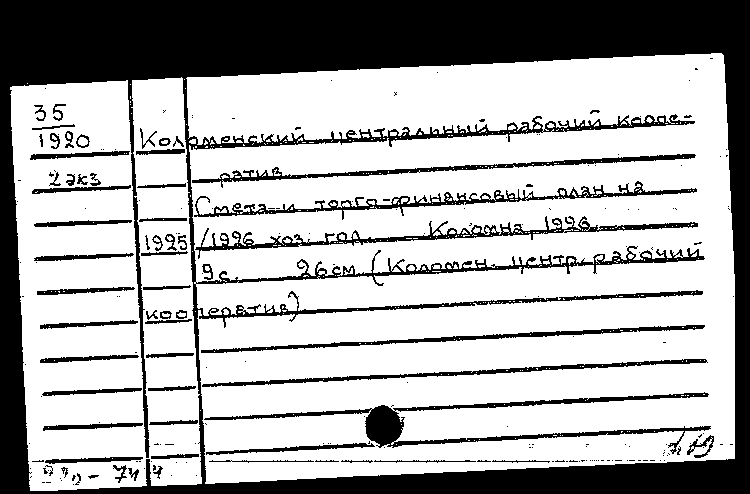 35
1920 Коломенский центральный рабочий коопе-
2 экз ратив
Смета и торго-финансовый план на
1925/1926 хоз. год. Коломна, 1926.
9 с. 26 см (Коломен. центр. рабочий
кооператив)